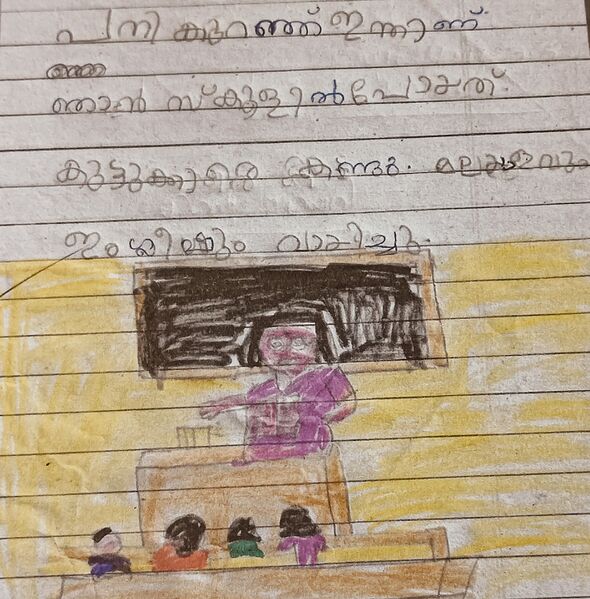 പനി കുറഞ്ഞ് ഇന്നാണ്
ഞാൻ സ്കൂളിൽ പോയത്.
കൂട്ടുക്കാരെ കണ്ടു. മലയാളവും
ഇംഗ്ലീഷും വായിച്ചു.